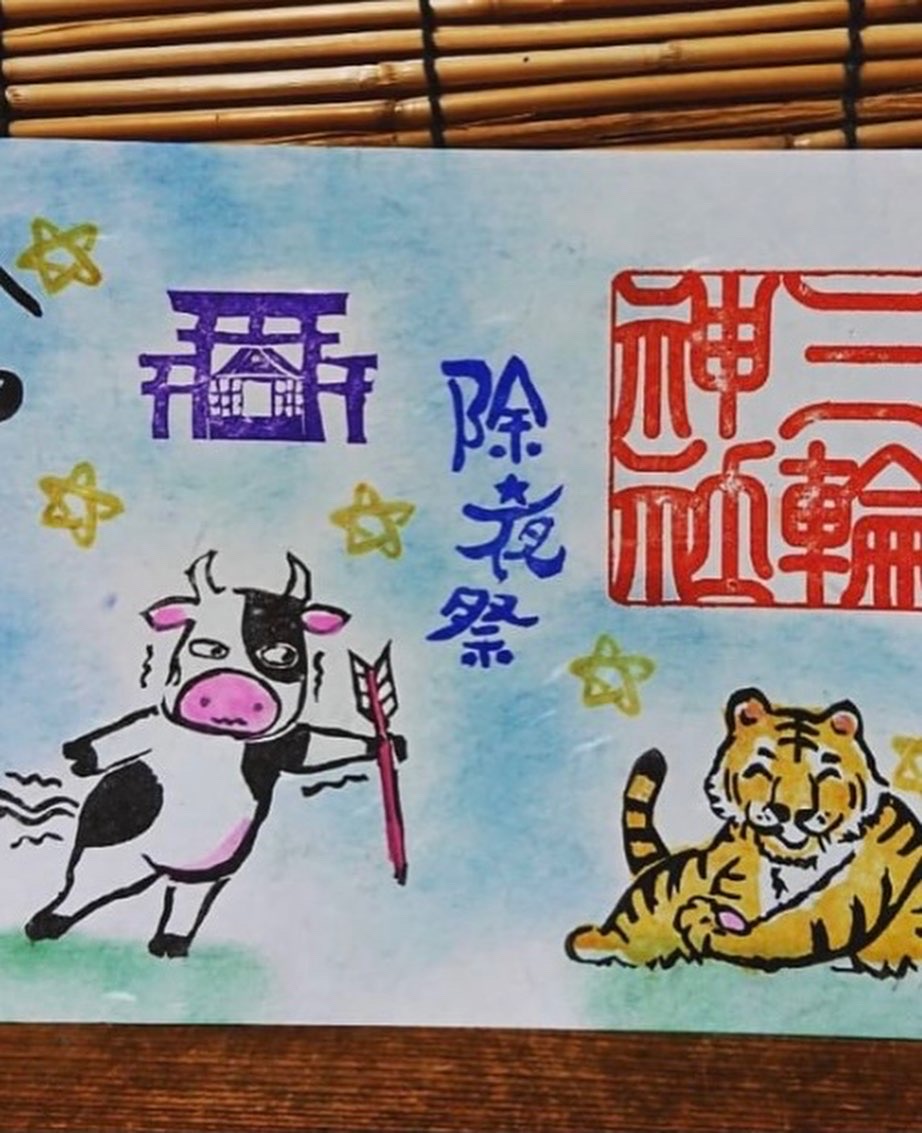 三輪
神社
除夜祭